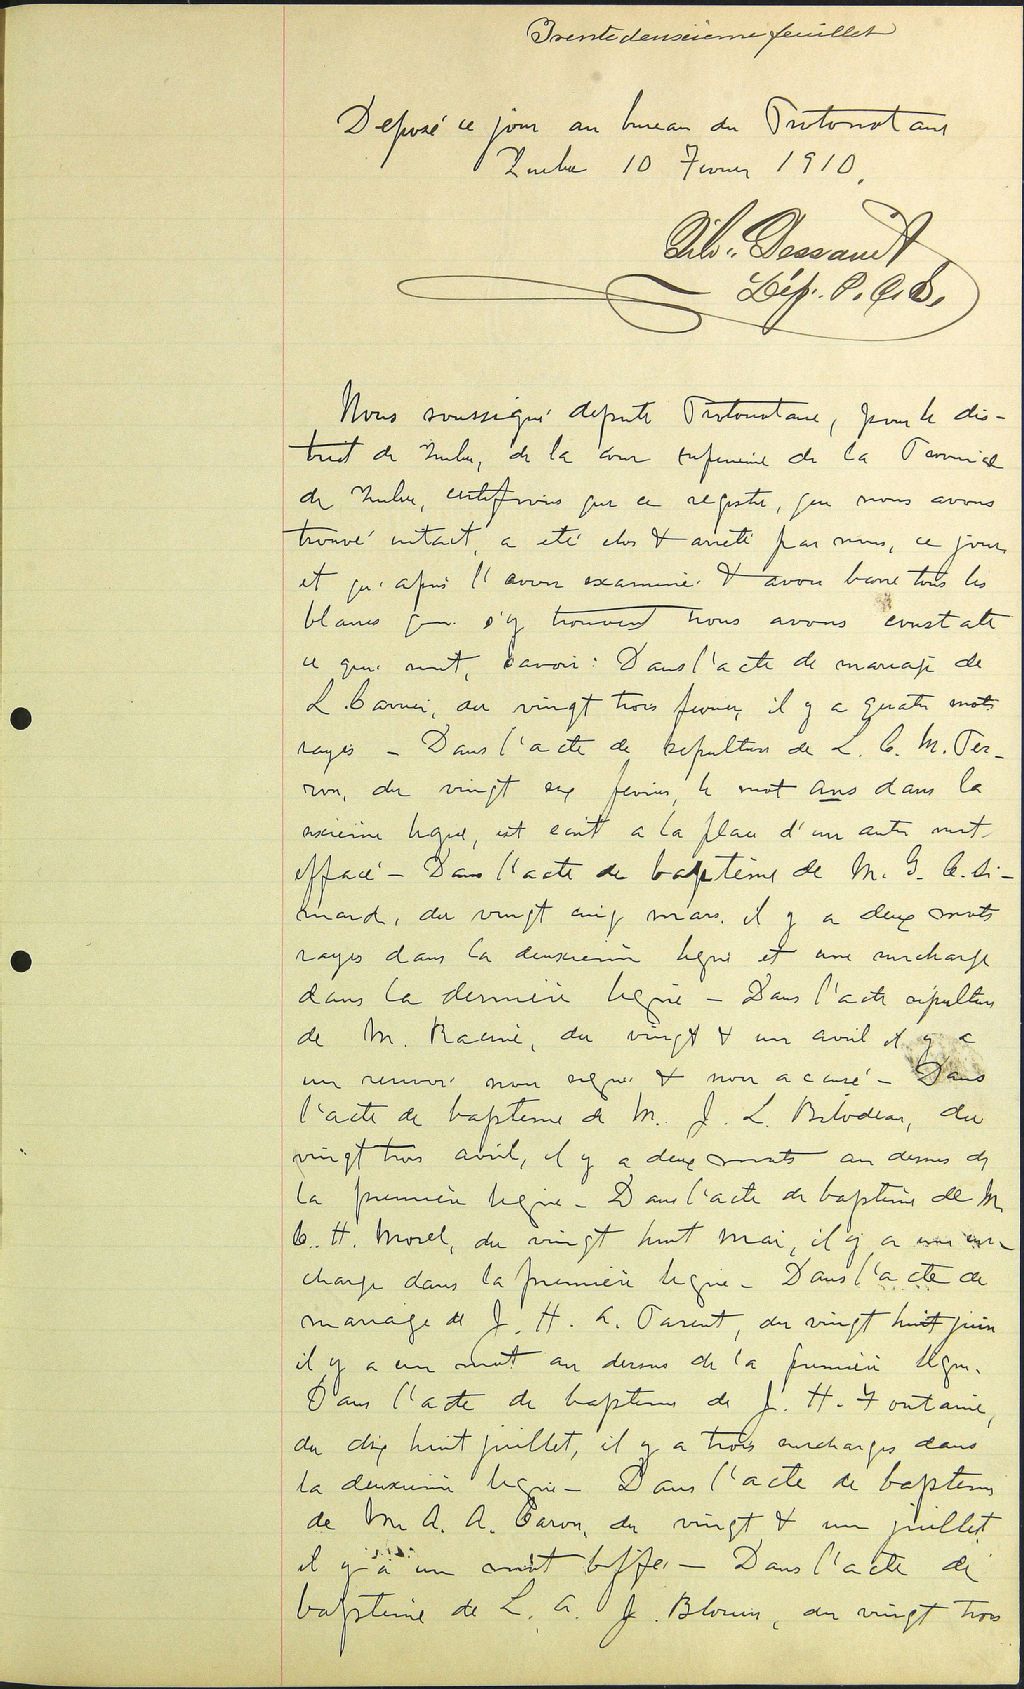 Trente deuxième feuillet
Déposé ce jour au bureau du Protonotaire
Québec 10 Fevrier 1910.
Dessault
Dép. P. C. S.
Nous soussigné député Protonotaire, pour le dis-
trict de Québec, de la cour supérieure de la Province
de Québec, certifions que ce registre, que nous avons
trouvé intact, a été clos & arrêté par nous, ce jour
et qu'après l'avoir examiné & avoir barré tous les
blancs qui s'y trouvent nous avons constaté
ce qui suit, savoir: Dans l'acte de mariage de
L. Carrier, du vingt trois fevrier, il y a quatre mots
rayés – Dans l'acte de sépulture de L. C. M. Fer-
ron, du vingt six fevrier, le mot ans dans la
sixième ligne, est écrit à la place d'un autre mot
effacé – Dans l'acte de baptême de M. G. C. Si-
mard, du vingt cinq mars, il y a deux mots
rayés dans la deuxième ligne et une surcharge
dans la dernière ligne – Dans l'acte sépulture
de M. Racine, du vingt & un avril il y a
un renvoi non signé & non accusé – Dans
l'acte de baptême de M. J. L. Bilodeau, du
vingt trois avril, il y a deux mots au dessus de
la première ligne – Dans l'acte de baptême de M
C. H. Morel, du vingt huit mai, il y a une sur-
charge dans la première ligne – Dans l'acte de
mariage de J. H. A. Parent, du vingt huit juin
il y a un mot au dessus de la première ligne.
Dans l'acte de baptême de J. H. Fontaine,
du dix huit juillet, il y a trois surcharges dans
la deuxième ligne – Dans l'acte de baptême
de M. A. A. Caron, du vingt & un juillet
il y a un mot biffé – Dans l'acte de
baptême de L. A. J. Blouin, du vingt trois